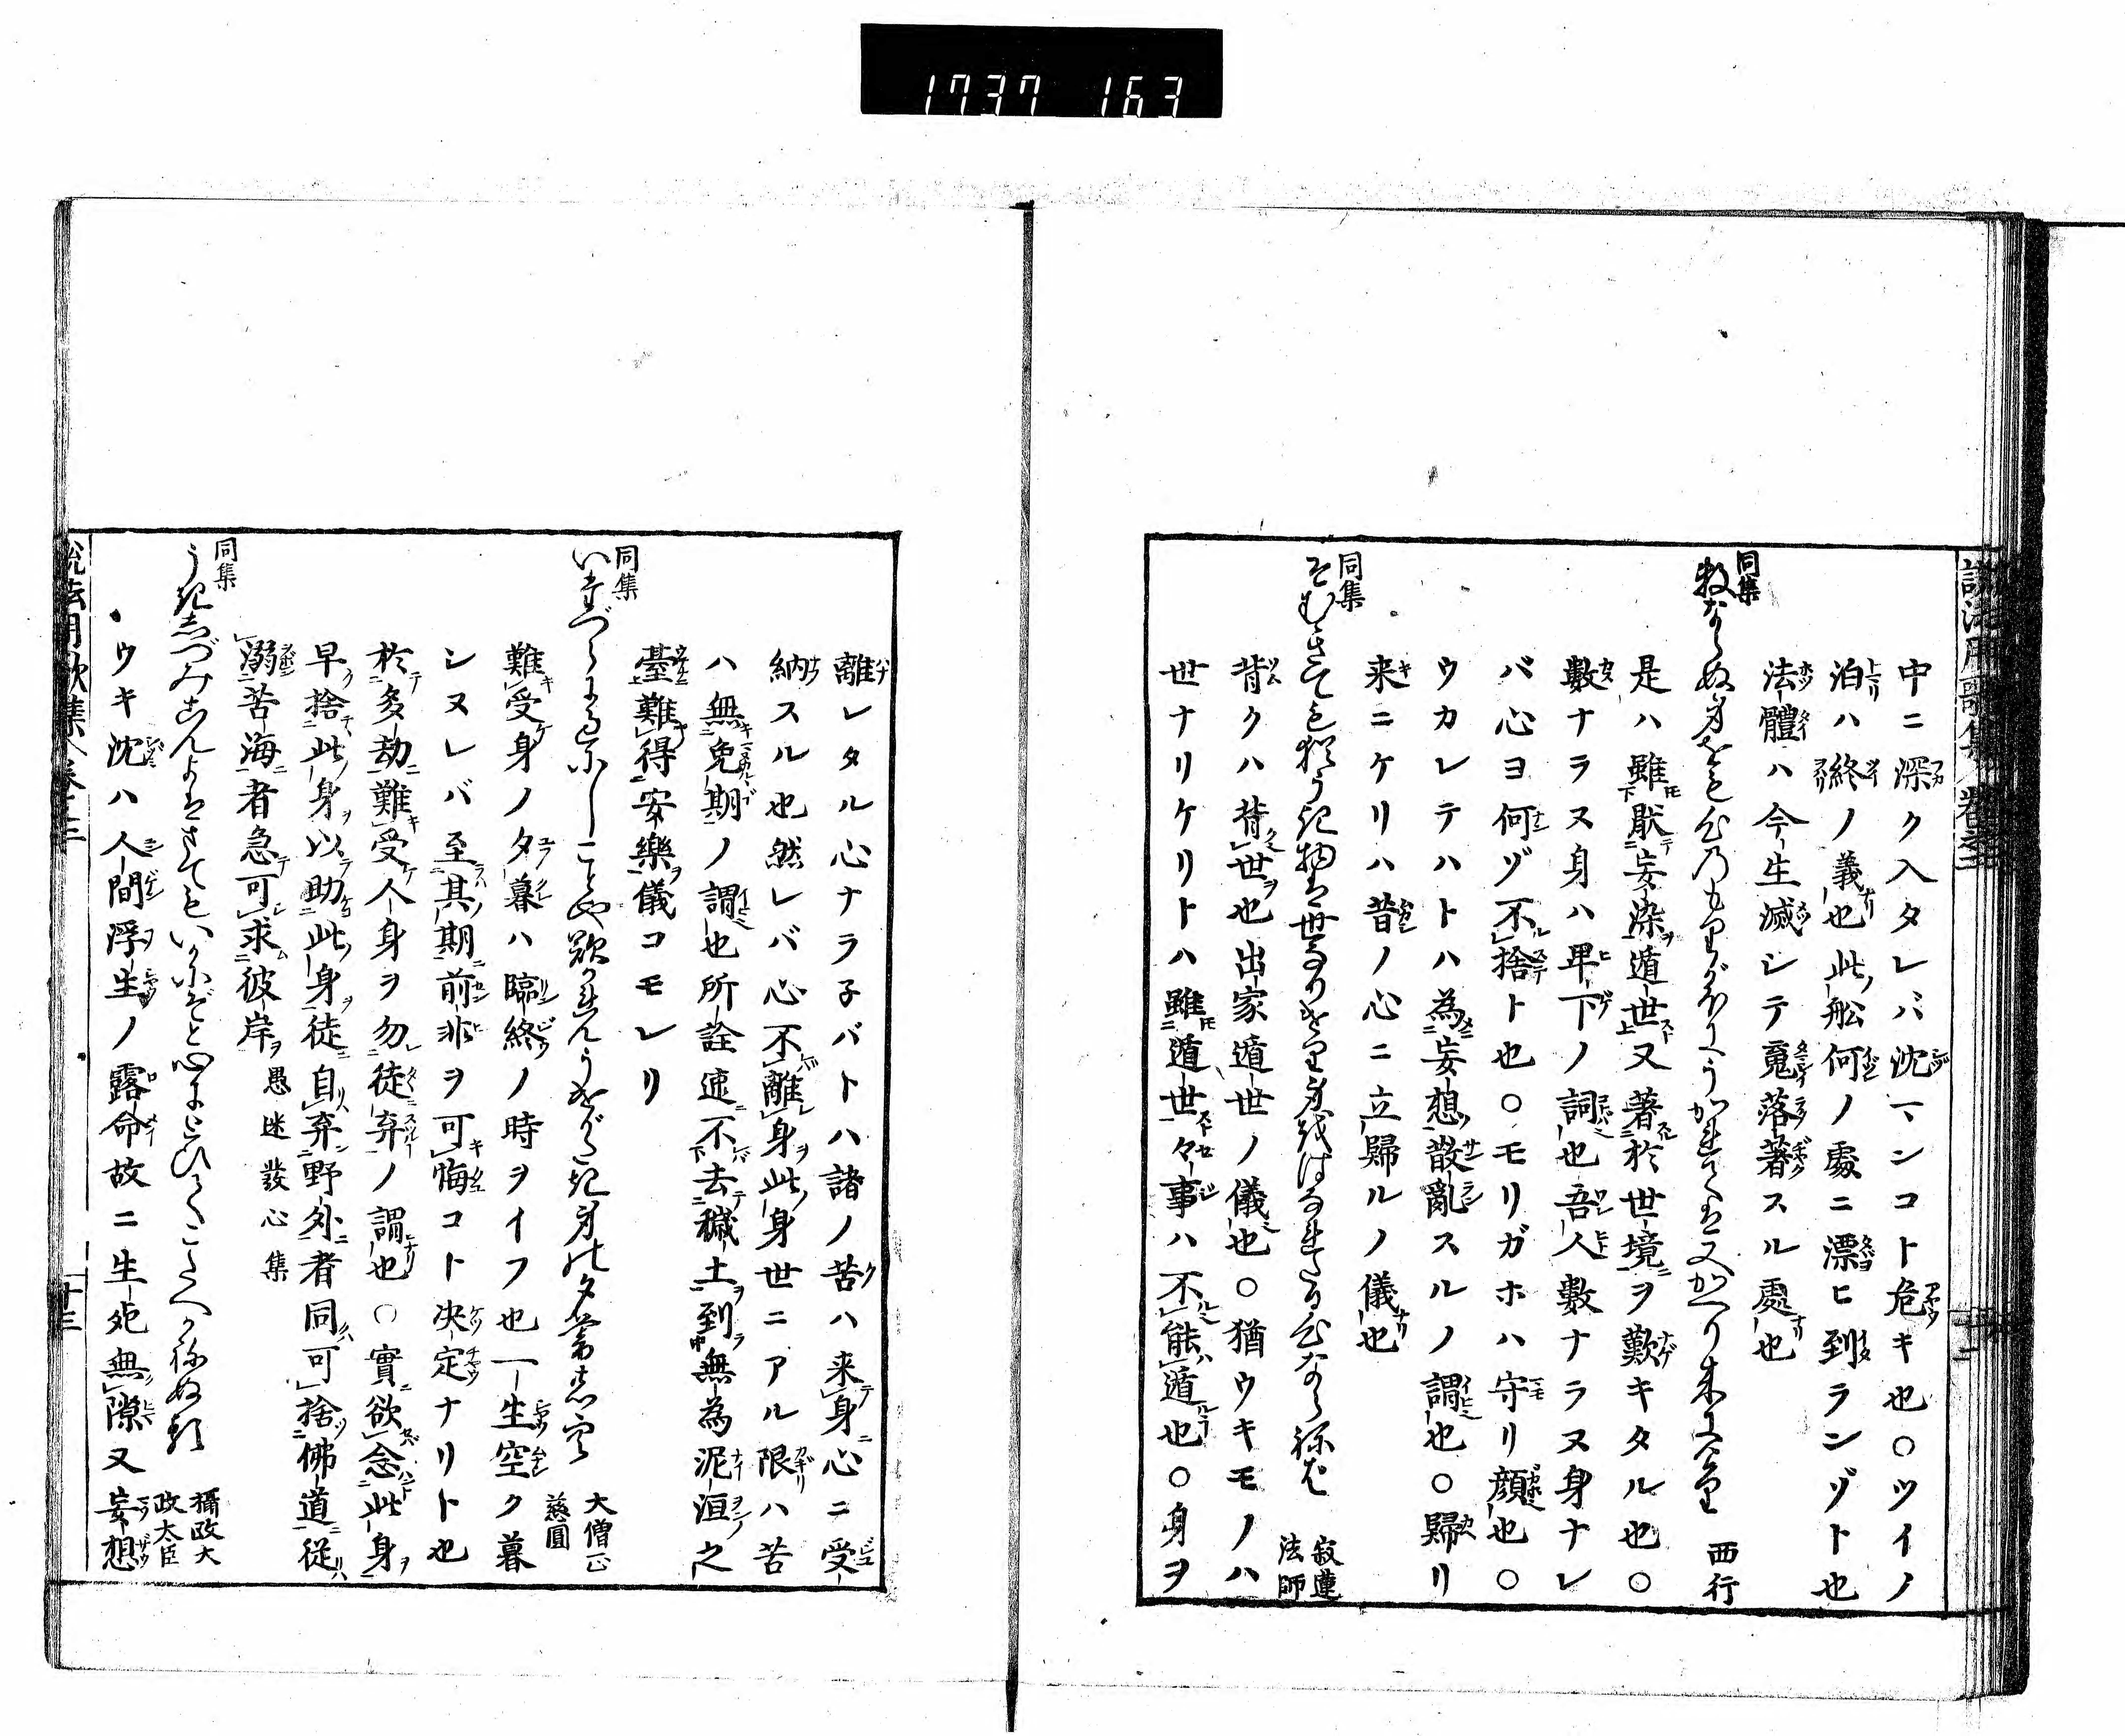 1737 163
中ニ深ク入タレバ沈マンコト危キ也○ツイノ
泊ハ終ノ義也此船何ノ處ニ漂ヒ到ランゾト也
法體ハ今生滅シテ竟落著スル處也
同集
數ならぬ身をも心のもりがほにうかれては又かへり来にけり 西行
是ハ雖厭妄染遁世又著於世境ヲ歎キタル也○
數ナラヌ身ハ卑下ノ詞也吾人數ナラヌ身ナレ
バ心ヨ何ゾ不捨ト也○モリガホハ守リ顔也○
ウカレテハトハ為妄想散亂スルノ謂也○歸リ
来ニケリハ昔ノ心ニ立歸ルノ儀也
同集
そむきても猶うき物は世なりけり身をはなれたる心ならねば 寂蓮法師
背クハ背世也出家遁世ノ儀也○猶ウキモノハ
世ナリケリトハ雖遁世々事ハ不能遁也○身ヲ
離レタル心ナラ子バトハ諸ノ苦ハ来身心ニ受
納スル也然レバ心不離身此身世ニアル限ハ苦
ハ無免期ノ謂也所詮速不去穢土到無為泥洹之
臺難得安樂儀コモレリ
同集
いたづらに過にしことや歎かれんうけがたき身の夕暮の空 大僧正慈圓
難受身ノ夕暮ハ臨終ノ時ヲイフ也一生空ク暮
シヌレバ至其期前非ヲ可悔コト决定ナリト也
於多劫難受人身ヲ勿徒弃ノ謂也○實欲念此身
早捨此身以助此身徒自弃野外者同可捨佛道從
溺苦海者急可求彼岸 愚迷發心集
同集
うきしづみこんよはさてもいかにぞと心にとひてこたへかねぬる 攝政大政大臣
ウキ沈ハ人間浮生ノ露命故ニ生死無隙又妄想
說法用歌集 卷之二 十三